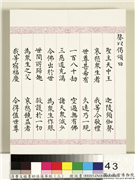 聲以偈頌曰
聖主天中王 迦陵頻伽聲
哀愍眾生者 我等今敬禮
世尊甚希有 久遠乃一現
一百八十劫 空過無有佛
三惡道充滿 諸天眾減少
今佛出於世 為眾生作眼
世間所歸趣 救護於一切
為眾生之父 哀愍饒益者
我等宿福慶 今得值世尊
43